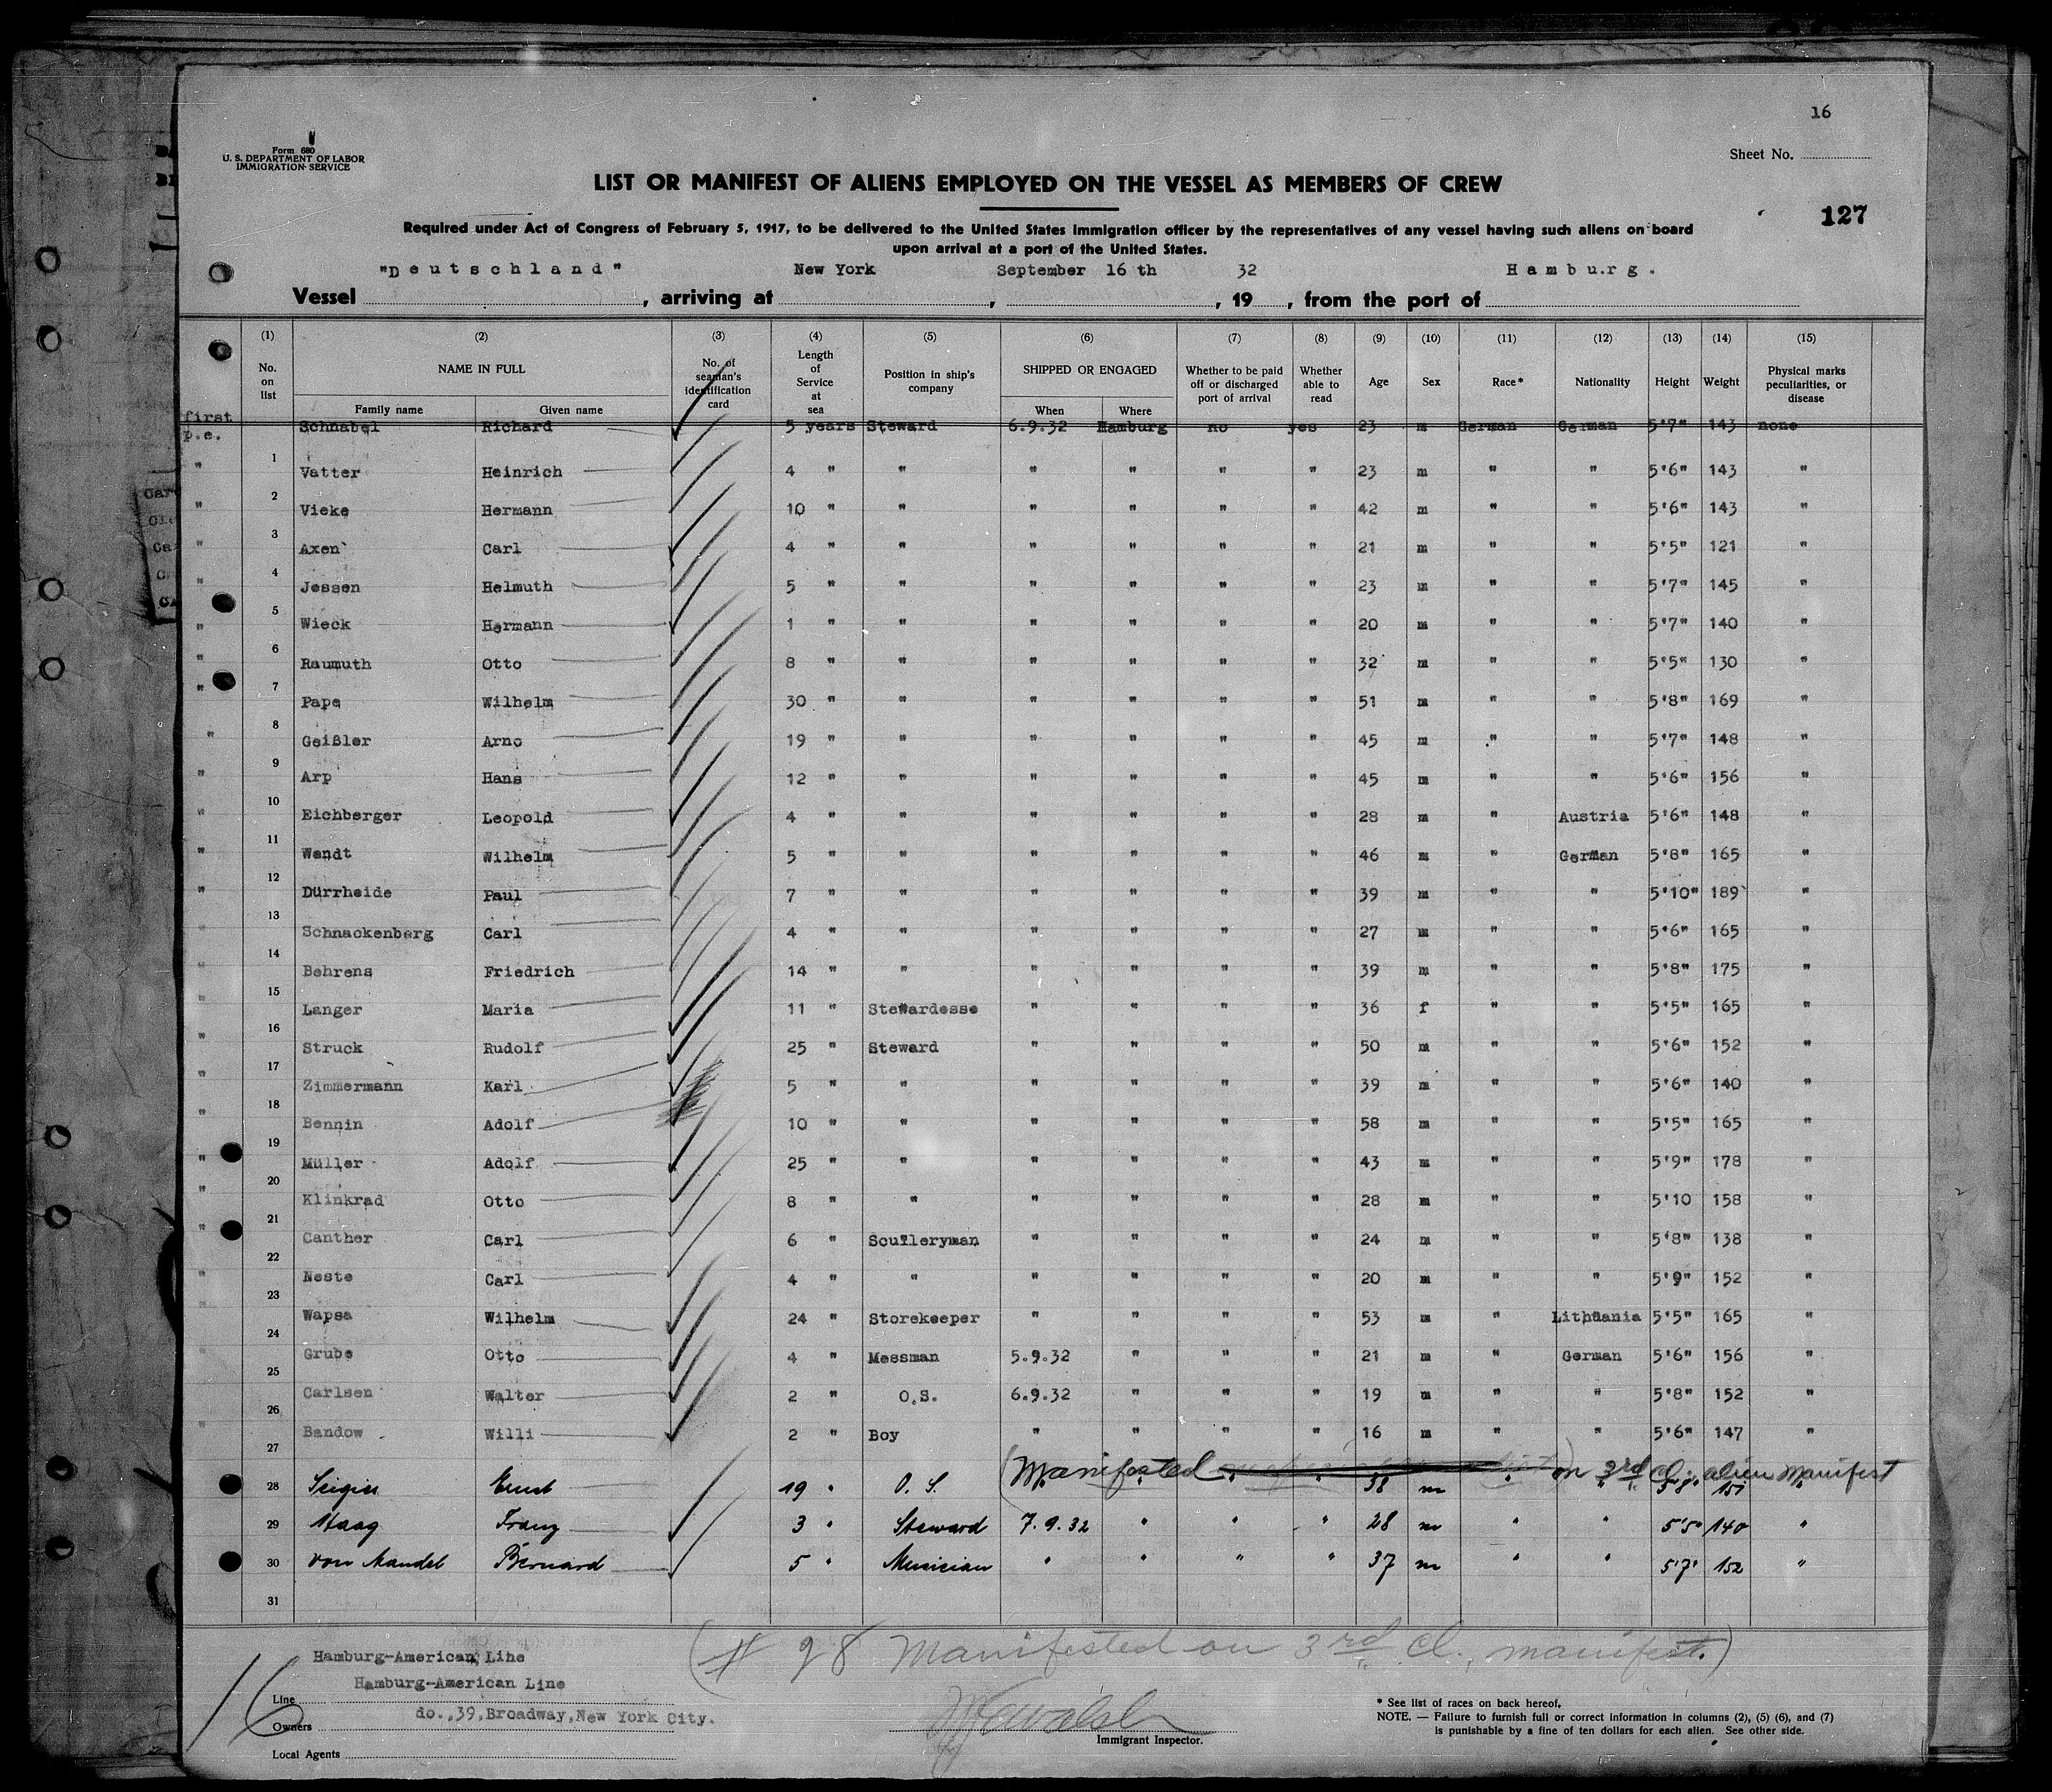 16
Form 680
U. S. DEPARTMENT OF LABOR
IMMIGRATION SERVICE
Sheet No.
LIST OR MANIFEST OF ALIENS EMPLOYED ON THE VESSEL AS MEMBERS OF CREW
127
Required under Act of Congress of February 5, 1917, to be delivered to the United States immigration officer by the representatives of any vessel having such aliens on board
upon arrival at a port of the United States.
"Deutschland" New York September 16 th 32 Hamburg.
Vessel , arriving at , , 19 , from the port of
(1) (2) (3) (4) (5) (6) (7) (8) (9) (10) (11) (12) (13) (14) (15)
No. on list NAME IN FULL Family name Given name No. of seaman's identification card Length of Service at sea Position in ship's company SHIPPED OR ENGAGED When Where Whether to be paid off or discharged port of arrival Whether able to read Age Sex Race* Nationality Height Weight Physical marks peculiarities, or disease
first p.e. Schnabel Richard 5 years Steward 6.9.32 Hamburg no yes 23 m German German 5'7" 143 none
" 1 Vatter Heinrich 4 " " " " " " 23 m " " 5'6" 143 "
" 2 Vieke Hermann 10 " " " " " " 42 m " " 5'6" 143 "
" 3 Axen Carl 4 " " " " " " 21 m " " 5'5" 121 "
" 4 Jessen Helmuth 5 " " " " " " 23 m " " 5'7" 145 "
" 5 Wieck Hermann 1 " " " " " " 20 m " " 5'7" 140 "
" 6 Raumuth Otto 8 " " " " " " 32 m " " 5'5" 130 "
" 7 Pape Wilhelm 30 " " " " " " 51 m " " 5'8" 169 "
" 8 Geißler Arno 19 " " " " " " 45 m " " 5'7" 148 "
" 9 Arp Hans 12 " " " " " " 45 m " " 5'6" 156 "
" 10 Eichberger Leopold 4 " " " " " " 28 m " Austria 5'6" 148 "
" 11 Wendt Wilhelm 5 " " " " " " 46 m " German 5'8" 165 "
" 12 Dürrheide Paul 7 " " " " " " 39 m " " 5'10" 189 "
" 13 Schnackenberg Carl 4 " " " " " " 27 m " " 5'6" 165 "
" 14 Behrens Friedrich 14 " " " " " " 39 m " " 5'8" 175 "
" 15 Langer Maria 11 " Stewardesse " " " " 36 f " " 5'5" 165 "
" 16 Struck Rudolf 25 " Steward " " " " 50 m " " 5'6" 152 "
" 17 Zimmermann Karl 5 " " " " " " 39 m " " 5'6" 140 "
" 18 Bennin Adolf 10 " " " " " " 58 m " " 5'5" 165 "
" 19 Müller Adolf 25 " " " " " " 43 m " " 5'9" 178 "
" 20 Klinkrad Otto 8 " " " " " " 28 m " " 5'10 158 "
" 21 Canther Carl 6 " Sculleryman " " " " 24 m " " 5'8" 138 "
" 22 Neste Carl 4 " " " " " " 20 m " " 5'9" 152 "
" 23 Wapsa Wilhelm 24 " Storekeeper " " " " 53 m " Lithuania 5'5" 165 "
" 24 Grube Otto 4 " Messman 5.9.32 " " " 21 m " German 5'6" 156 "
" 25 Carlsen Walter 2 " O.S. 6.9.32 " " " 19 m " " 5'8" 152 "
" 26 Bandow Willi 2 " Boy " " " " 16 m " " 5'6" 147 "
27
(Manifested on 3rd Cl. alien manifest
28 Ernst 19 " O. S. " " " " 38 m " " 5'8" 151 "
29 Haag Franz 3 " Steward 7.9.32 " " " 28 m " " 5'5" 140 "
30 von Mandel Bernard 5 " Musician " " " " 37 m " " 5'7" 152 "
31
(# 98 Manifested on 3rd Cl. manifest.)
16
Hamburg-American Line
Hamburg-American Line
Line
do.,39,Broadway,New York City.
Owners
Local Agents
Immigrant Inspector.
* See list of races on back hereof.
NOTE. — Failure to furnish full or correct information in columns (2), (5) (6), and (7)
is punishable by a fine of ten dollars for each alien. See other side.